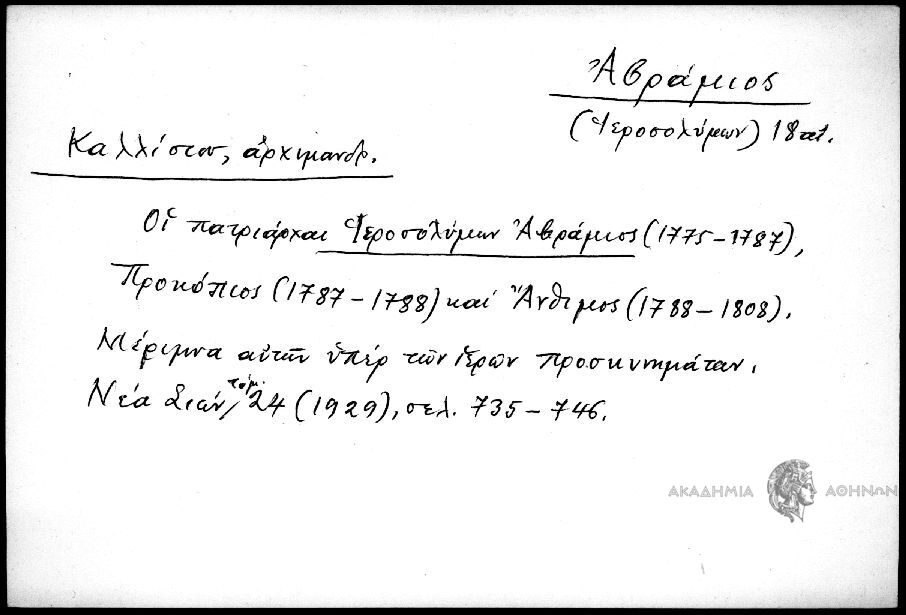 Ἀβράμιος
(Ἱεροσολύμων) 18 αἰ.
Καλλίστου, ἀρχιμανδρ.
Οἱ πατριάρχαι Ἱεροσολύμων Ἀβράμιος (1775-1787),
Προκόπιος (1787-1788) καὶ Ἄνθιμος (1788-1808).
Μέριμνα αὐτῶν ὑπὲρ τῶν ἱερῶν προσκυνημάτων.
Νέα Σιών, τόμ. 24 (1929), σελ. 735-746.
ΑΚΑΔΗΜΙΑ ΑΘΗΝΩΝ